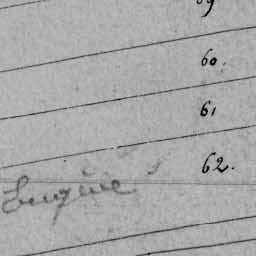 59
60.
61
62.
Eugène